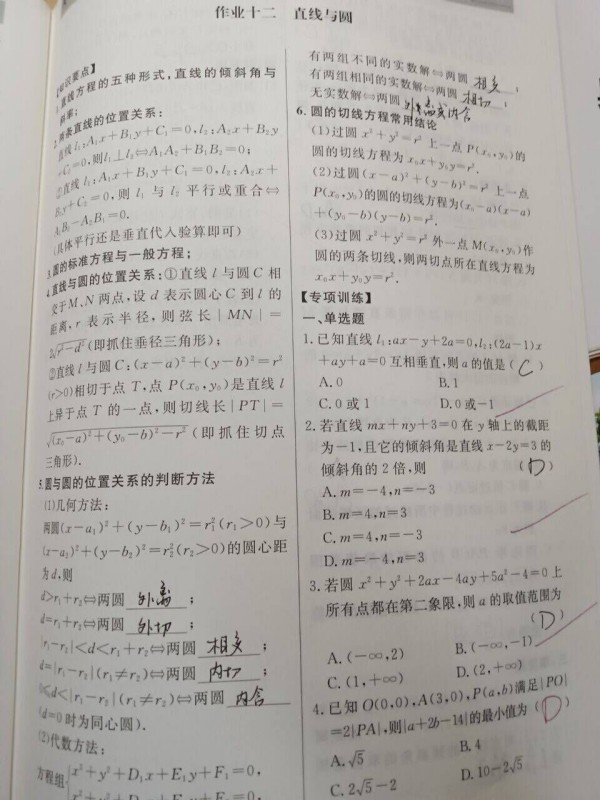 作业十二 直线与圆
【知识要点】
1.直线方程的五种形式,直线的倾斜角与
斜率;
2.两条直线的位置关系:
直线l₁:A₁x+B₁y+C₁=0,l₂:A₂x+B₂y
+C₂=0,则l₁⊥l₂⇔A₁A₂+B₁B₂=0;
②直线l₁:A₁x+B₁y+C₁=0,l₂:A₂x+
B₂y+C₂=0,则l₁与l₂平行或重合⇔
A₁B₂-A₂B₁=0.
(具体平行还是垂直代入验算即可)
3.圆的标准方程与一般方程;
4.直线与圆的位置关系:①直线l与圆C相
交于M、N两点,设d表示圆心C到l的
距离,r表示半径,则弦长|MN|=
2√(r²-d²)(即抓住垂径三角形);
②直线l与圆C:(x-a)²+(y-b)²=r²
(r>0)相切于点T,点P(x₀,y₀)是直线l
上异于点T的一点,则切线长|PT|=
√((x₀-a)²+(y₀-b)²-r²)(即抓住切点
三角形).
5.圆与圆的位置关系的判断方法
(1)几何方法:
两圆(x-a₁)²+(y-b₁)²=r₁²(r₁>0)与
(x-a₂)²+(y-b₂)²=r₂²(r₂>0)的圆心距
为d,则
d>r₁+r₂⇔两圆 外离;
d=r₁+r₂⇔两圆 外切;
|r₁-r₂|<d<r₁+r₂⇔两圆 相交;
d=|r₁-r₂|(r₁≠r₂)⇔两圆 内切;
0≤d<|r₁-r₂|(r₁≠r₂)⇔两圆 内含
(d=0时为同心圆).
(2)代数方法:
方程组{x²+y²+D₁x+E₁y+F₁=0,
x²+y²+D₂x+E₂y+F₂=0,
有两组不同的实数解⇔两圆 相交;
有两组相同的实数解⇔两圆 相切;
无实数解⇔两圆 外离或内含
6.圆的切线方程常用结论
(1)过圆x²+y²=r²上一点P(x₀,y₀)的
圆的切线方程为x₀x+y₀y=r².
(2)过圆(x-a)²+(y-b)²=r²上一点
P(x₀,y₀)的圆的切线方程为(x₀-a)(x-a)
+(y₀-b)(y-b)=r².
(3)过圆x²+y²=r²外一点M(x₀,y₀)作
圆的两条切线,则两切点所在直线方程为
x₀x+y₀y=r².
【专项训练】
一、单选题
1.已知直线l₁:ax-y+2a=0,l₂:(2a-1)x
+ay+a=0互相垂直,则a的值是(C)
A.0 B.1
C.0或1 D.0或-1
2.若直线mx+ny+3=0在y轴上的截距
为-1,且它的倾斜角是直线x-2y=3的
倾斜角的2倍,则 (D)
A.m=-4,n=-3
B.m=4,n=3
C.m=4,n=-3
D.m=-4,n=3
3.若圆x²+y²+2ax-4ay+5a²-4=0上
所有点都在第二象限,则a的取值范围为
(D)
A.(-∞,2) B.(-∞,-1)
C.(1,+∞) D.(2,+∞)
4.已知O(0,0),A(3,0),P(a,b)满足|PO|
=2|PA|,则|a+2b-14|的最小值为(D)
A.√5 B.4
C.2√5-2 D.10-2√5